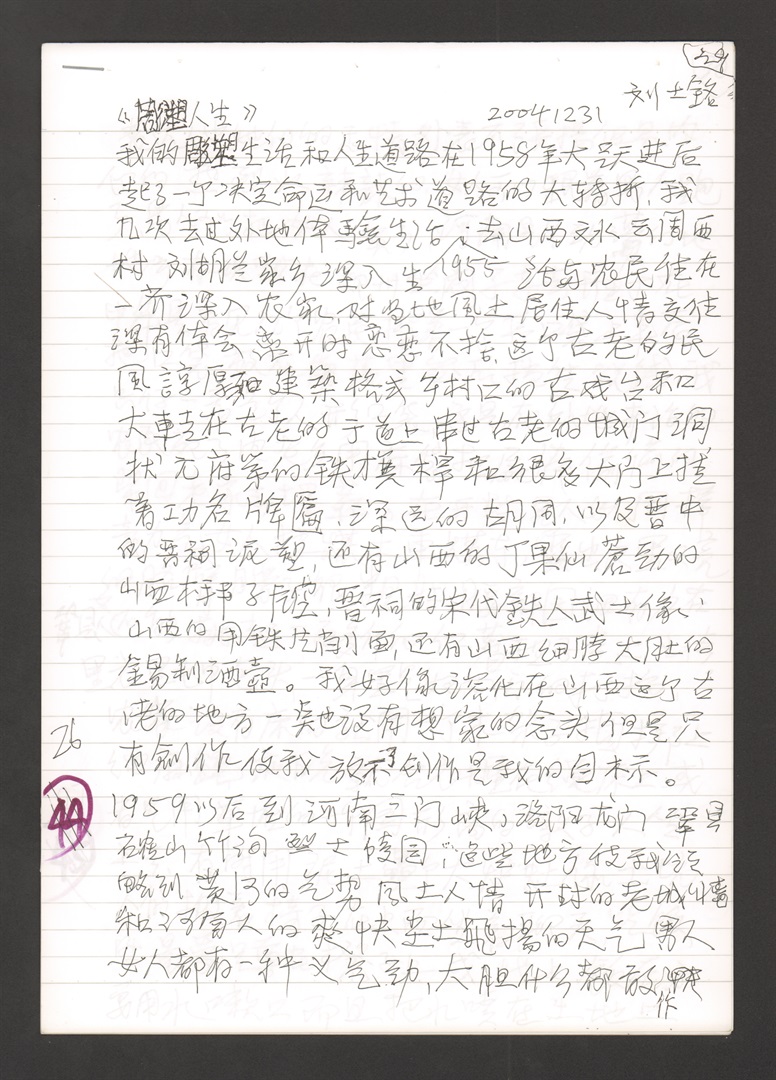 刘士铭
《雕塑人生》 20041231
我的雕塑生活和人生道路在1958年大跃进后
起了一个决定命运和艺术道路的大转折,我
几次去过外地体验生活,去山西文水云周西
村 刘胡兰家乡深入生 1955 活与农民住在
一齐深入农家,对当地风土居住人情交往
深有体会 离开时恋恋不舍,这个古老的民
風諄厚和建築格式 乡村口的古戏台和
大車走在古老的干道上串过古老的城门洞
状元府第的铁旗杆和很多大门上挂
着功名牌匾,深远的胡同,以及晋中
的晋祠泥塑,还有山西的丁果仙蒼劲的
山西梆子腔,晋祠的宋代鉄人武士像、
山西的用铁片削面,还有山西细脖大肚的
錫制酒壶。我好像溶化在山西这个古
老的地方一点也没有想家的念头 但是只
有創作使我放不了创作是我的目标。
26
44
1959以后到河南三门峡,洛阳龙门 鞏县
確山竹沟烈士陵园,这些地方使我领
略到黄河的气势 風土人情 开封的老城
和河南人的爽快尘土飛揚的天气 男人
女人都有一种义气劲、大胆什么都敢
作